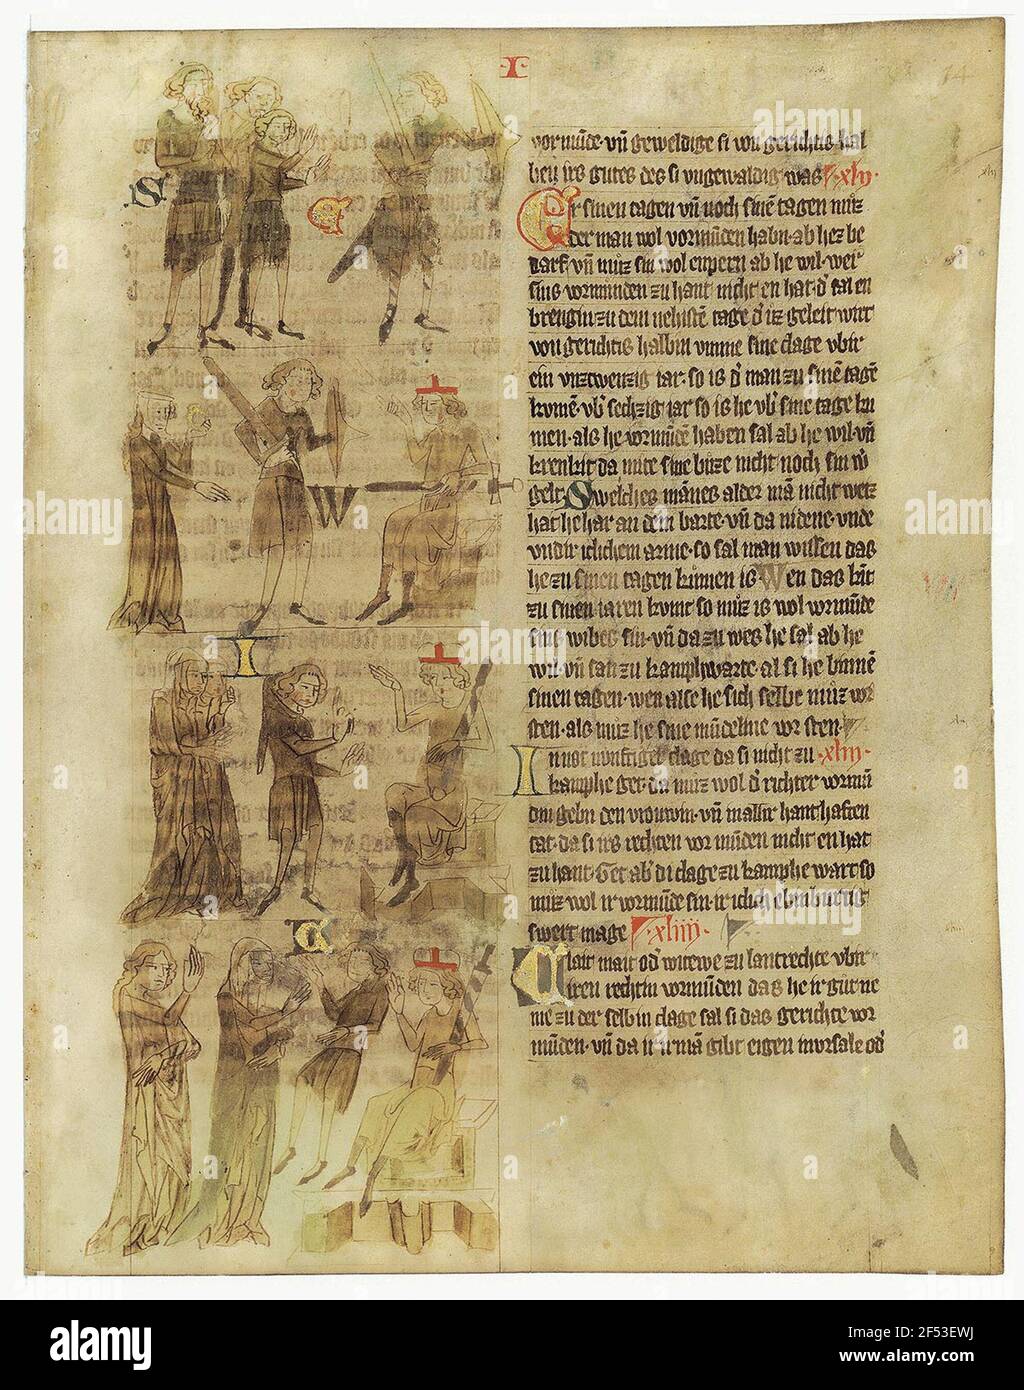 ·I·
14
vormũde·vñ geweldige si von gerichtis hal
ben irs gutes des si vngewaldig was ·xlij·
Er sinen tagen vñ noch sinẽ tagen mũz
der man wol vormũden habñ·ab hez be
darf·vñ mũz sin wol enpern ab he wil·wer
sins vormunden zu hant nicht en hat·d' sal en
brengin zu dem nehistẽ tage d' iz geleit wirt
von gerichtis halbin vmme sine clage vbir
ein vnzwenzig iar·so is d' man zu sinẽ tagẽ
komẽ·vb' sechzig iar so is he vb' sine tage ku
men·als he vormũdẽ haben sal ab he wil·vñ
krenkit da mite sine buze nicht noch sin w'
gelt·Swelches mãnes alder mã nicht weiz
hat he har an dem barte·vñ da nidene·vnde
vndir iclichem arme·so sal man wissen das
he zu sinen tagen kumen is·Wen das kĩt
zu sinen iaren komt so mũz is wol vormũde
sins wibes sin·vñ da zu wes he sal ab he
wil·vñ satzu kamphwarte·al si he binnẽ
sinen tagen·wen alse he sich selbe mũz vor
sten·als mũz he sine mũdeline vor sten·
In not nunftiger clage da si nicht zu ·xliij·
kamphe get·da mũz wol d' richter vormũ
din gebñ den vrouwin·vñ in allir hanthaften
tat·da si irs rechten vor mũden nicht en hat
zu hant·Get ab' di clage zu kamphe wart so
mũz wol ir vormũde sin·ir iclich ebinburtig
swert mage ·xliiij·
Clait mait od' witewe zu lantrechte vbir
iren rechtin vormũden das he ir gut ne
me zu der selbin clage sal si das gerichte vor
mũden·vñ da ir ir mã gibt eigen in vrsale od'
S
E
W
I
C
alamy
alamy
Image ID: 2F53EWJ
www.alamy.com